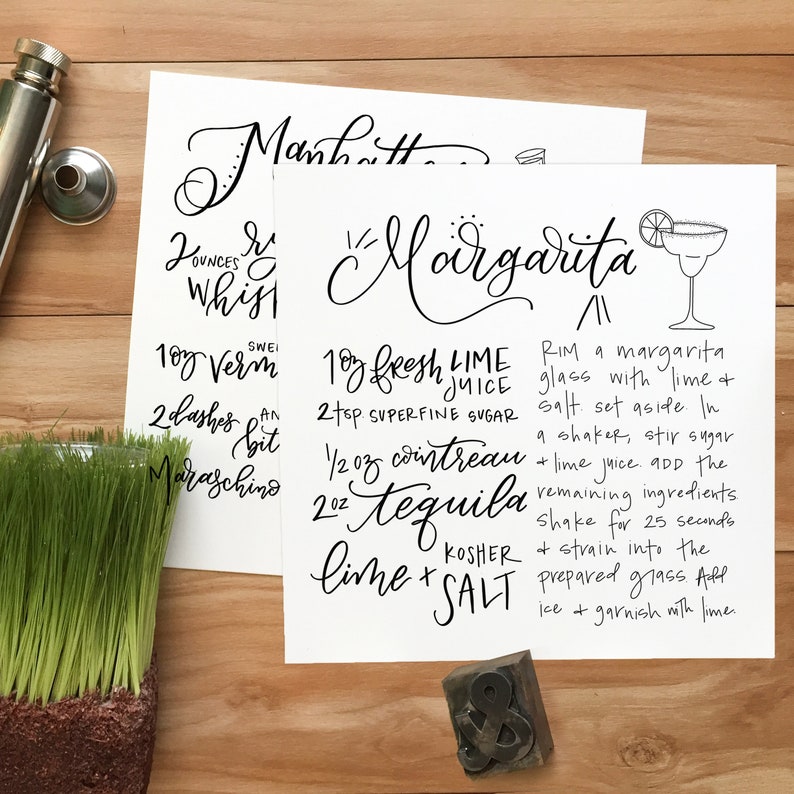 Manhattan
2 OUNCES
Whis
SWE
1oz Verm
2 dashes
bit
Maraschino
Margarita
1oz fresh LIME
JUICE
2 tsp SUPERFINE SUGAR
1/2 oz cointreau
2 oz tequila
lime + KOSHER
SALT
RIM a margarita
glass with lime +
salt. set aside. In
a shaker, stir sugar
+ lime juice. ADD the
remaining ingredients.
shake for 25 seconds
+ strain into the
prepared glass. Add
ice + garnish with lime.
&